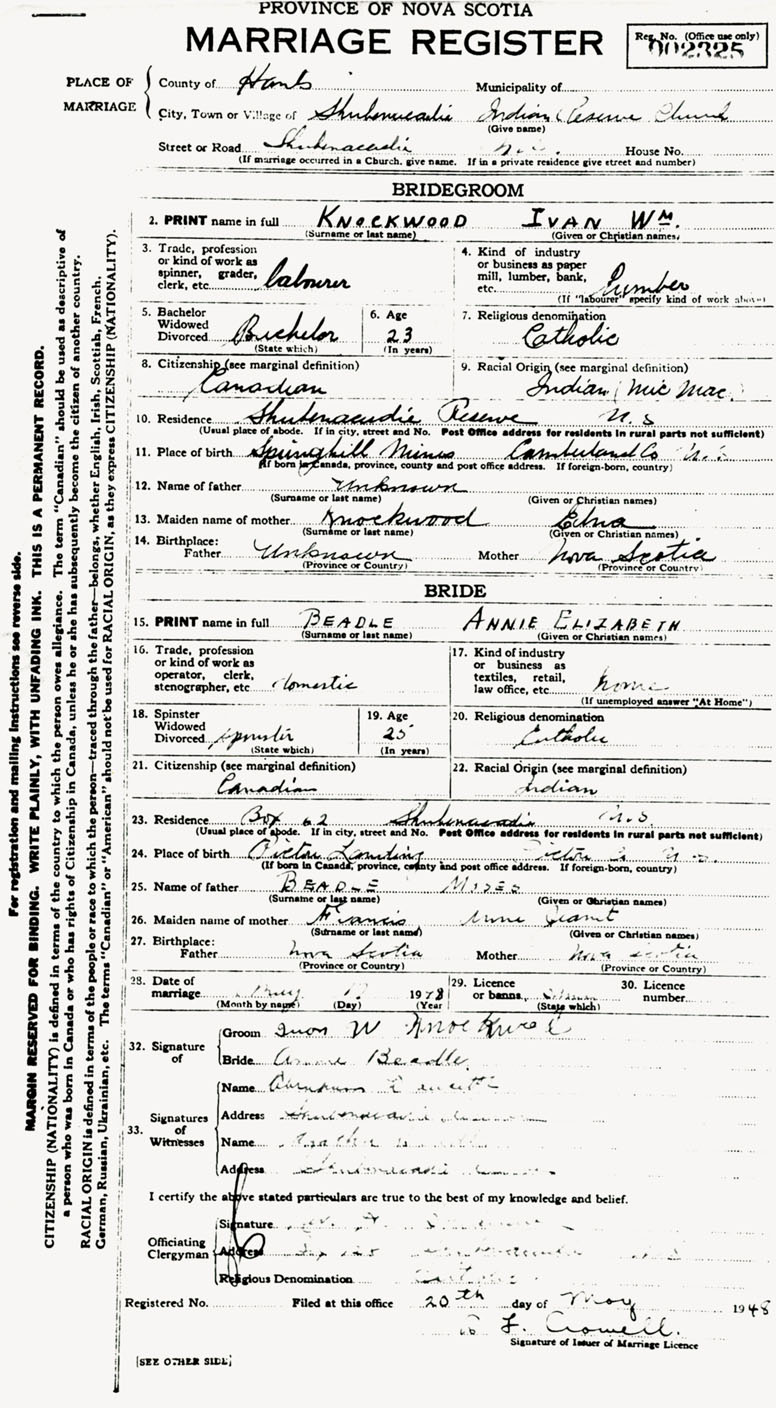 PROVINCE OF NOVA SCOTIA
MARRIAGE REGISTER
Reg. No. (Office use only)
002325
PLACE OF MARRIAGE
County of Hants Municipality of
City, Town or Village of Shubenacadie Indian Reserve Church
(Give name)
Street or Road Shubenacadie N.S. House No.
(If marriage occurred in a Church, give name. If in a private residence give street and number)
BRIDEGROOM
2. PRINT name in full KNOCKWOOD IVAN WM.
(Surname or last name) (Given or Christian names)
3. Trade, profession or kind of work as spinner, grader, clerk, etc. labourer
4. Kind of industry or business as paper mill, lumber, bank, etc. Lumber
(If "labourer" specify kind of work above)
5. Bachelor Widowed Divorced Bachelor
(State which)
6. Age 23
(In years)
7. Religious denomination
Catholic
8. Citizenship (see marginal definition)
Canadian
9. Racial Origin (see marginal definition)
Indian (Mic Mac.)
10. Residence Shubenacadie Reserve N.S
(Usual place of abode. If in city, street and No. Post Office address for residents in rural parts not sufficient)
11. Place of birth Springhill Mines Cumberland Co N.S
(If born in Canada, province, county and post office address. If foreign-born, country)
12. Name of father Unknown
(Surname or last name) (Given or Christian names)
13. Maiden name of mother Knockwood Edna
(Surname or last name) (Given or Christian names)
14. Birthplace:
Father Unknown Mother Nova Scotia
(Province or Country) (Province or Country)
BRIDE
15. PRINT name in full BEADLE ANNIE ELIZABETH
(Surname or last name) (Given or Christian names)
16. Trade, profession or kind of work as operator, clerk, stenographer, etc domestic
17. Kind of industry or business as textiles, retail, law office, etc. home
(If unemployed answer "At Home")
18. Spinster Widowed Divorced spinster
(State which)
19. Age 25
(In years)
20. Religious denomination
Catholic
21. Citizenship (see marginal definition)
Canadian
22. Racial Origin (see marginal definition)
Indian
23. Residence Box 62 Shubenacadie N.S.
(Usual place of abode. If in city, street and No. Post Office address for residents in rural parts not sufficient)
24. Place of birth Pictou Landing Pictou Co N.S.
(If born in Canada, province, county and post office address. If foreign-born, country)
25. Name of father BEADLE MOSES
(Surname or last name) (Given or Christian names)
26. Maiden name of mother Francis Anne
(Surname or last name) (Given or Christian names)
27. Birthplace:
Father Nova Scotia Mother Nova Scotia
(Province or Country) (Province or Country)
28. Date of marriage May 1948
(Month by name) (Day) (Year
29. Licence or banns
(State which)
30. Licence number
32. Signature of
Groom Ivan W Knockwood
Bride Annie Beadle
33. Signatures of Witnesses
Name Abraham
Address Shubenacadie
Name
Address Shubenacadie
I certify the above stated particulars are true to the best of my knowledge and belief.
Officiating Clergyman
Signature
Address
Religious Denomination Catholic
Registered No. Filed at this office 20th day of May 1948
F. Crowell.
Signature of Issuer of Marriage Licence
[SEE OTHER SIDE]
For registration and mailing instructions see reverse side.
MARGIN RESERVED FOR BINDING. WRITE PLAINLY, WITH UNFADING INK. THIS IS A PERMANENT RECORD.
CITIZENSHIP (NATIONALITY) is defined in terms of the country to which the person owes allegiance. The term "Canadian" should be used as descriptive of
a person who was born in Canada or who has rights of Citizenship in Canada, unless he or she has subsequently become the citizen of another country.
RACIAL ORIGIN is defined in terms of the people or race to which the person—traced through the father—belongs, whether English, Irish, Scottish, French,
German, Russian, Ukrainian, etc. The terms "Canadian" or "American" should not be used for RACIAL ORIGIN, as they express CITIZENSHIP (NATIONALITY).